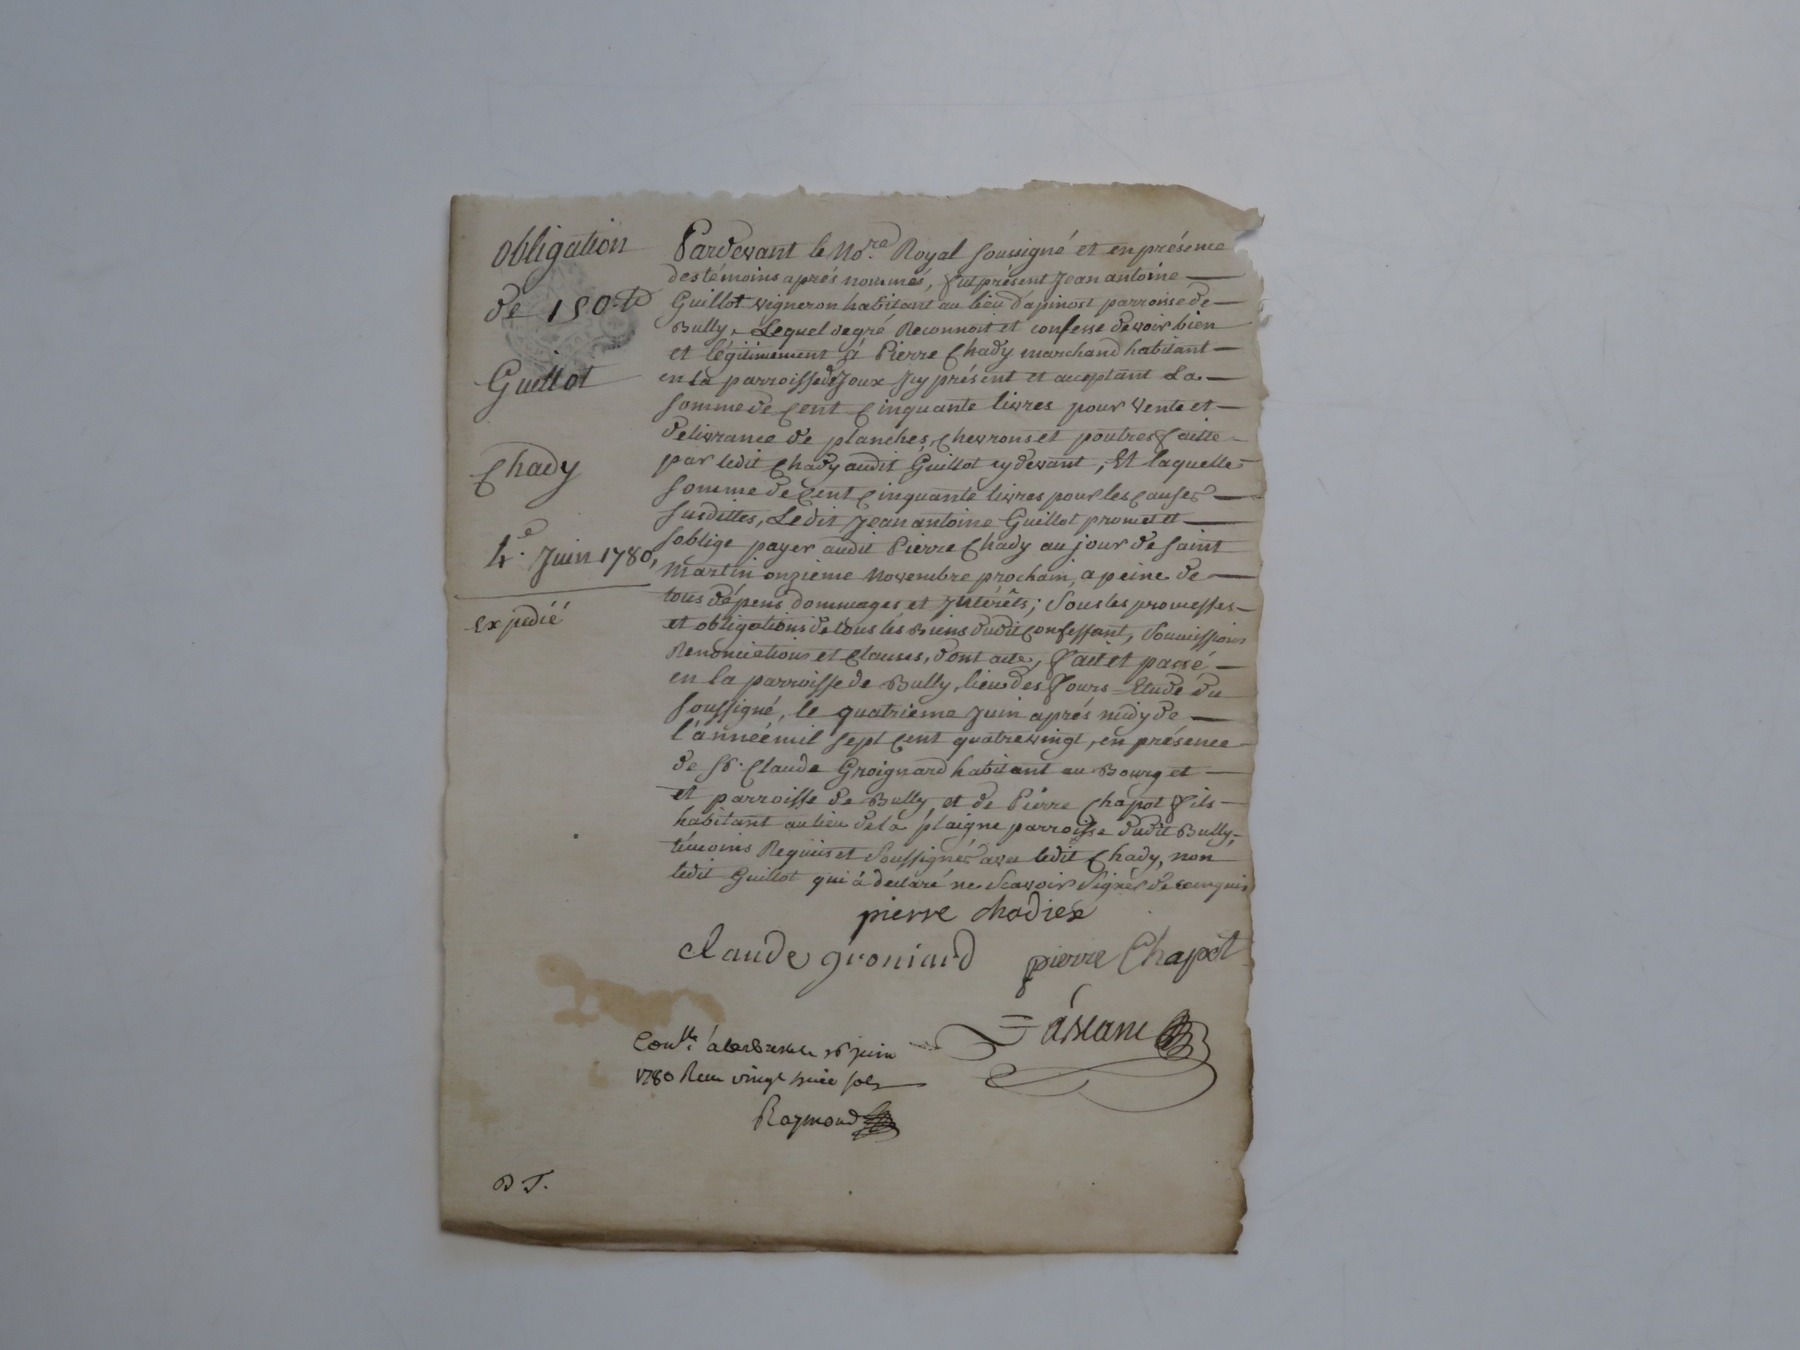 obligation
de 150.#
Guillot
Chady
4.e Juin 1780,
expedié
Pardevant le No.re Royal soussigné et en présence
des témoins aprés nommés, fut présent Jean antoine
Guillot vigneron habitant au lieu d'apinost parroisse de
Bully, Lequel de gré Reconnoit et confesse devoir bien
et légitimement à Pierre Chady marchand habitant
en la parroisse de Joux Icy présent et acceptant La
somme de Cent Cinquante livres pour Vente et
delivrance de planches, chevrons et poutres faitte
par ledit Chady audit Guillot cy devant, Et laquelle
somme de Cent Cinquante livres pour les causes
susdittes, Ledit Jean antoine Guillot promet et
s'oblige payer audit Pierre Chady au jour de saint
Martin onzieme Novembre prochain, a peine de
tous dépens dommages et Intérêts; sous les promesses
et obligations de tous les Biens dudit confessant, Soumissions
Renonciations et Clauses, dont acte, fait et passé
en la parroisse de Bully, lieu des fours Etude du
soussigné, le quatrieme Juin aprés midy de
l'année mil sept cent quatre vingt, en présence
de Sr. Claude Groignard habitant au Bourg et
et parroisse de Bully, et de Pierre Chapot fils
habitant au lieu de la plaigne parroisse dudit Bully,
témoins Requis et Soussignés avec ledit Chady, non
ledit Guillot qui à declaré ne Scavoir Signer de ce enquis
pierre chadier
claude groniard pierre Chapot
16 juin
1780 Reçu vingt sols
Raymond